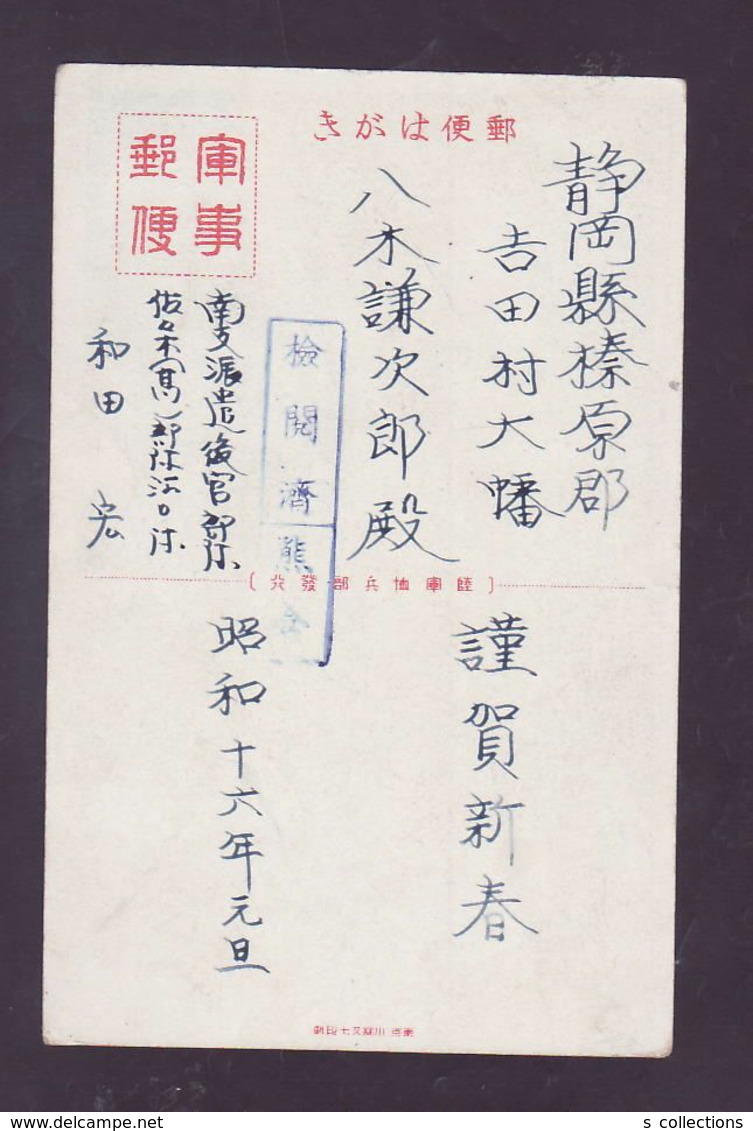 郵便はがき
軍事
郵便
静岡縣榛原郡
吉田村大幡
八木謙次郎殿
檢閲濟
熊
南支派遣後宮部隊
佐々木(高)部隊江口隊
和田 宏
〔陸軍恤兵部發行〕
謹賀新春
昭和十六年元旦
s collections